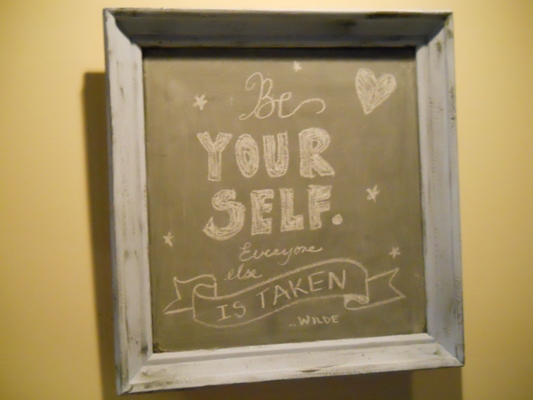 Be
YOUR
SELF.
Everyone
else
IS TAKEN
-WILDE